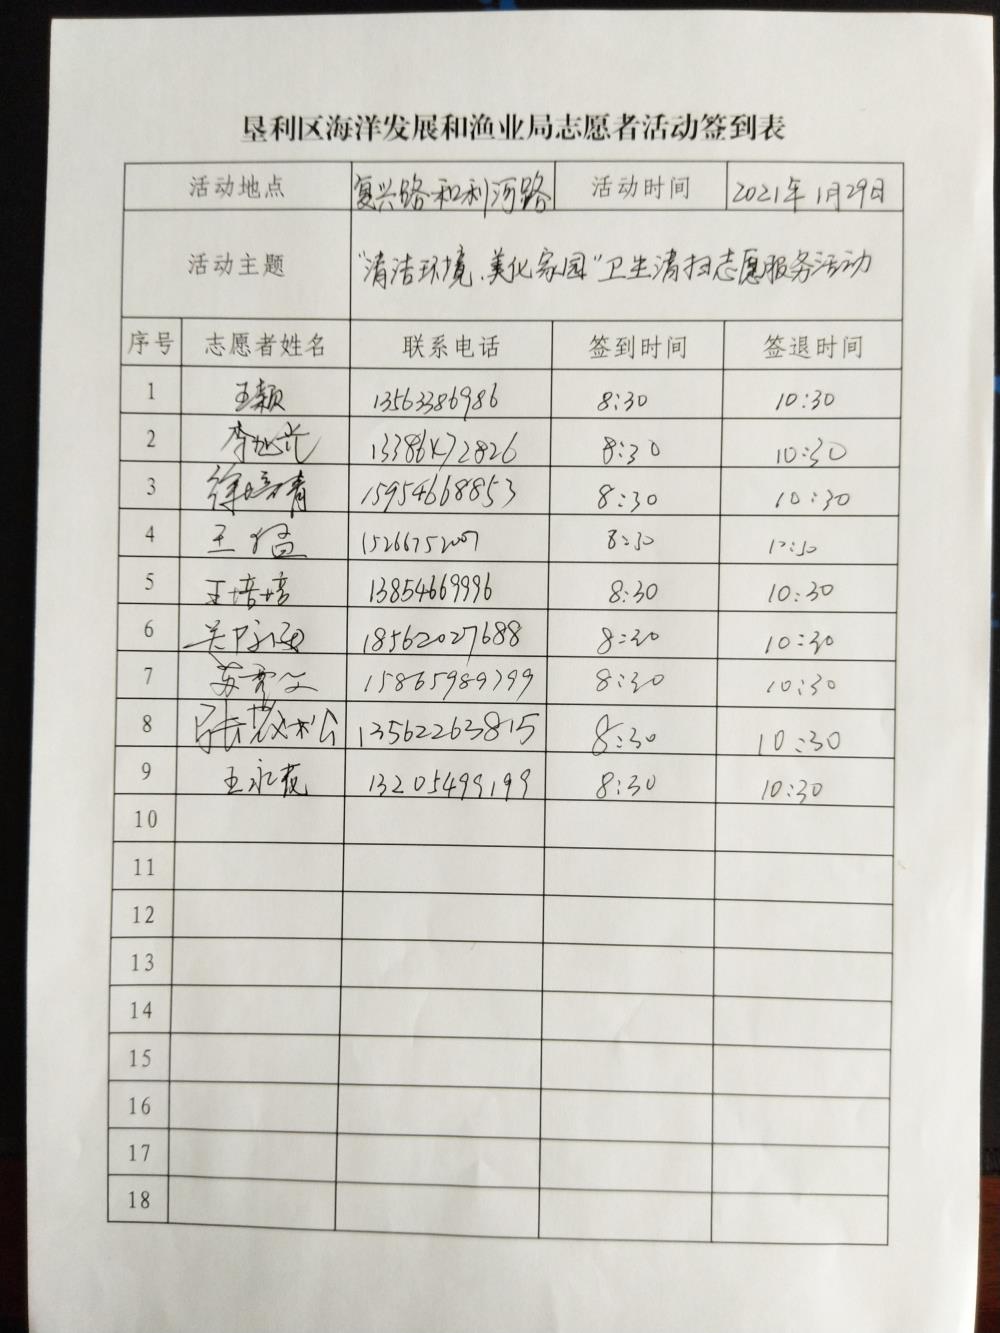 垦利区海洋发展和渔业局志愿者活动签到表
活动地点 复兴路和利河路 活动时间 2021年1月29日
活动主题 “清洁环境、美化家园”卫生清扫志愿服务活动
序号 志愿者姓名 联系电话 签到时间 签退时间
1 王颖 13563386986 8:30 10:30
2 8:30 10:30
3 徐培清 15954668853 8:30 10:30
4 王猛 8:30
5 王培培 13854669996 8:30 10:30
6 18562027688 8:30 10:30
7 8:30 10:30
8 13562263815 8:30 10:30
9 王永花 13205499199 8:30 10:30
10
11
12
13
14
15
16
17
18